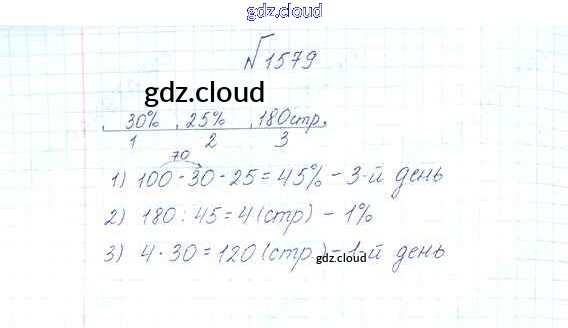 gdz.cloud
№1579
gdz.cloud
30% 25% 180стр.
1 2 3
70
1) 100-30-25=45% - 3-й день
2) 180:45=4(стр) - 1%
3) 4·30=120(стр.) - 1-й день
gdz.cloud
gdz.cloud